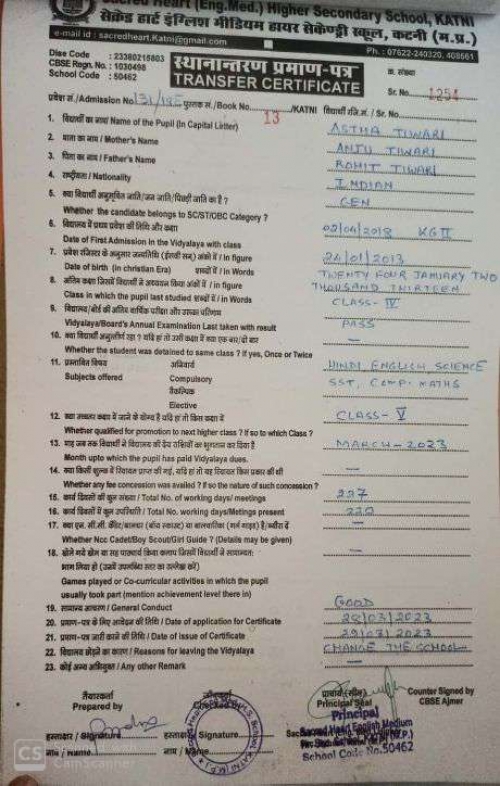 Sacred Heart (Eng.Med.) Higher Secondary School, KATNI
सेक्रेड हार्ट इंग्लिश मीडियम हायर सेकेण्ड्री स्कूल, कटनी (म.प्र.)
e-mail id : sacredheart.Katni@gmail.com
Ph. : 07622-240320, 408561
Dise Code : 23380215803
CBSE Regn. No. : 1030498
School Code : 50462
स्थानान्तरण प्रमाण-पत्र
TRANSFER CERTIFICATE
क्र. संख्या
Sr. No. 1254
प्रवेश सं./Admission No पुस्तक सं./Book No. 13 /KATNI विद्यार्थी रजि.नं. / Sr. No.
1. विद्यार्थी का नाम/ Name of the Pupil (In Capital Letter) ASTHA TIWARI
2. माता का नाम / Mother's Name ANJU TIWARI
3. पिता का नाम / Father's Name ROHIT TIWARI
4. राष्ट्रीयता / Nationality INDIAN
5. क्या विद्यार्थी अनुसूचित जाति/जन जाति/पिछड़ी जाति का है ?
Whether the candidate belongs to SC/ST/OBC Category ? GEN
6. विद्यालय में प्रथम प्रवेश की तिथि और कक्षा
Date of First Admission in the Vidyalaya with class 02/04/2018 KG II
7. प्रवेश रजिस्टर के अनुसार जन्मतिथि (ईस्वी सन्) अंकों में / In figure 24/01/2013
Date of birth (in christian Era) शब्दों में / in Words TWENTY FOUR JANUARY TWO THOUSAND THIRTEEN
8. अंतिम कक्षा जिसमें विद्यार्थी ने अध्ययन किया अंकों में / In figure
Class in which the pupil last studied शब्दों में / in Words CLASS- IV
9. विद्यालय/बोर्ड की अंतिम वार्षिक परीक्षा और उसका परिणाम
Vidyalaya/Board's Annual Examination Last taken with result PASS
10. क्या विद्यार्थी अनुत्तीर्ण रहा ? यदि हां तो उसी कक्षा में क्या एक बार/दो बार
Whether the student was detained to same class ? If yes, Once or Twice —
11. प्रस्तावित विषय अनिवार्य HINDI ENGLISH SCIENCE
Subjects offered Compulsory SST, COMP. MATHS
वैकल्पिक
Elective
12. क्या उच्चतर कक्षा में जाने के योग्य हैं यदि हां तो किस कक्षा में
Whether qualified for promotion to next higher class ? If so to which Class ? CLASS- V
13. माह जब तक विद्यार्थी ने विद्यालय की देय राशियों का भुगतान कर दिया है
Month upto which the pupil has paid Vidyalaya dues. MARCH - 2023
14. क्या किसी शुल्क में रियायत प्राप्त की गई, यदि हां तो वह रियायत किस प्रकार की थी
Whether any fee concession was availed ? If so the nature of such concession ? —
15. कार्य दिवसों की कुल संख्या / Total No. of working days/ meetings 227
16. कार्य दिवसों में कुल उपस्थिति / Total No. of working days/Metings present 220
17. क्या एन. सी. सी. कैडेट/बालचर (बॉय स्काउट) या बालचारिका (गर्ल गाइड) है/ब्यौरा दें —
Whether Ncc Cadet/Boy Scout/Girl Guide ? (Details may be given)
18. खेले गये खेल या सह पाठ्यचर्या क्रिया कलाप जिसमें विद्यार्थी ने सामान्यतः —
भाग लिया हो (उसमें उपलब्धि स्तर का उल्लेख करें)
Games played or Co-curricular activities in which the pupil
usually took part (mention achievement level there in)
19. सामान्य आचरण / General Conduct GOOD
20. प्रमाण-पत्र के लिए आवेदन की तिथि / Date of application for Certificate 28/03/2023
21. प्रमाण-पत्र जारी करने की तिथि / Date of issue of Certificate 29/03/2023
22. विद्यालय छोड़ने का कारण / Reasons for leaving the Vidyalaya CHANGE THE SCHOOL
23. कोई अन्य अभियुक्ति / Any other Remark —
तैयारकर्ता
Prepared by
जाँचकर्ता
Checked by
प्राचार्य (सील)
Principal Seal
Counter Signed by
CBSE Ajmer
हस्ताक्षर / Signature
हस्ताक्षर / Signature
नाम / Name
नाम / Name
Principal
Sacred Heart English Medium
School Code No.50462
CS
CamScanner